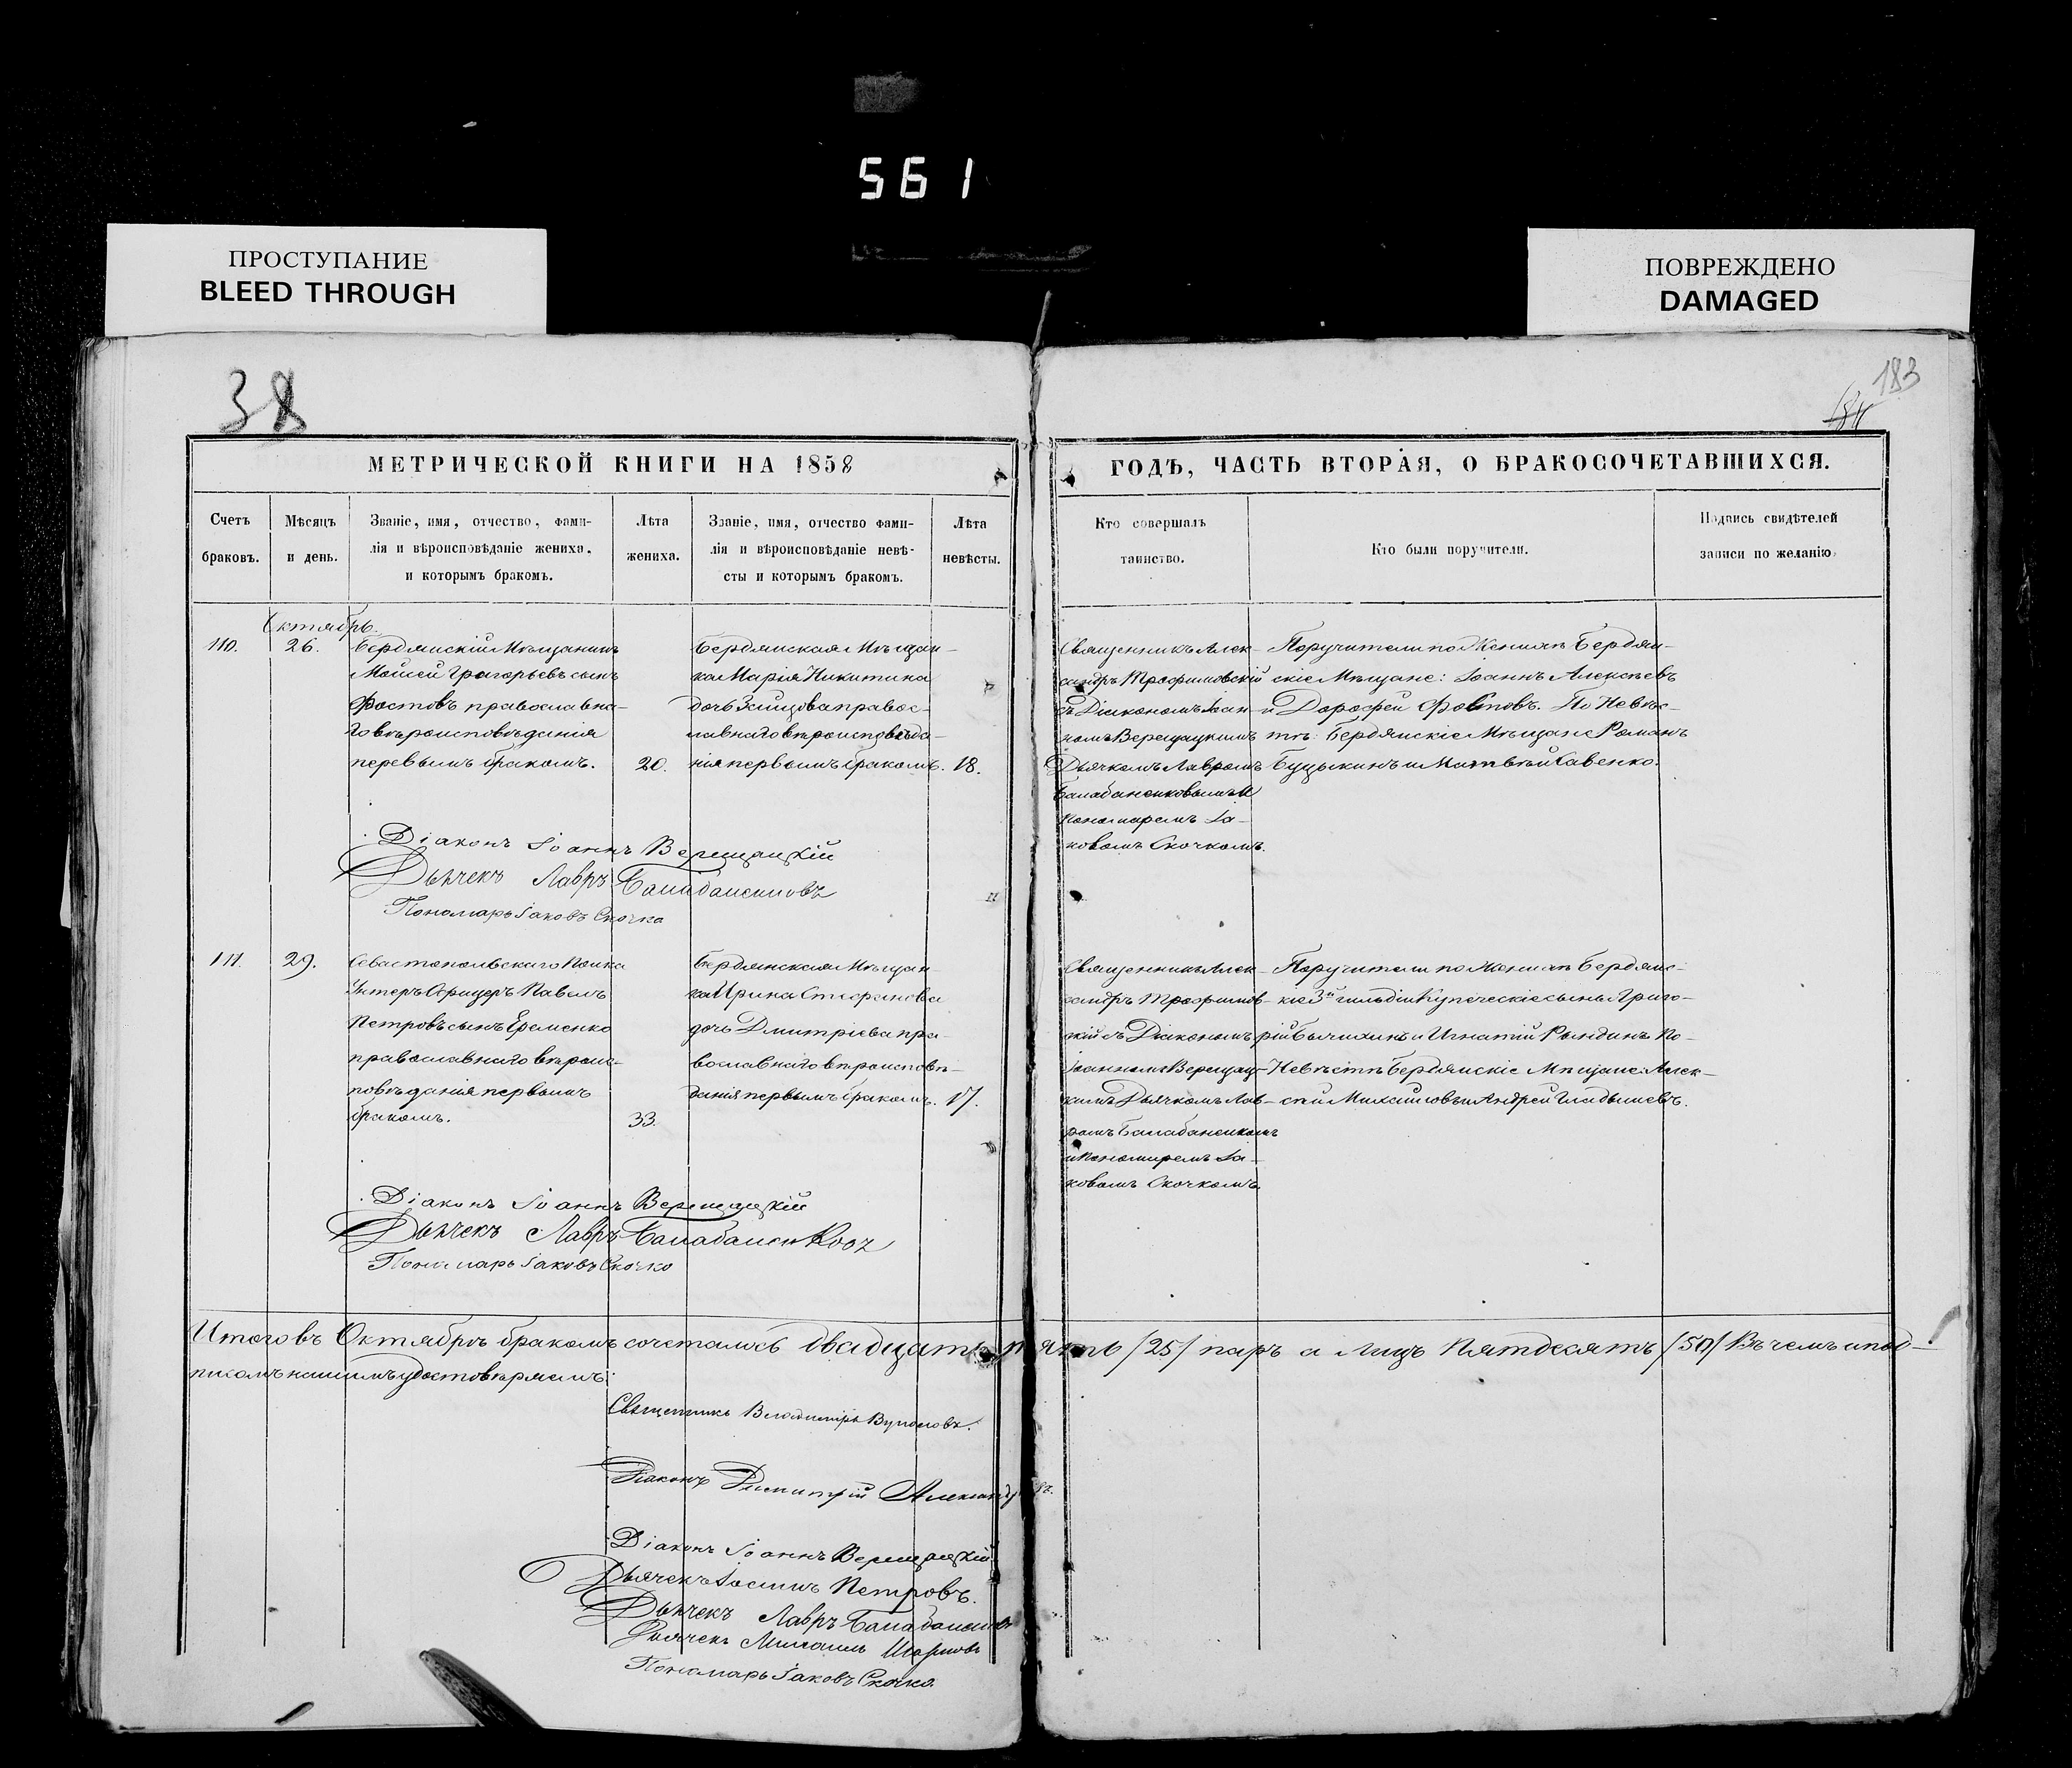 561
ПРОСТУПАНИЕ
BLEED THROUGH
ПОВРЕЖДЕНО
DAMAGED
38
183
МЕТРИЧЕСКОЙ КНИГИ НА 1858
ГОДЪ, ЧАСТЬ ВТОРАЯ, О БРАКОСОЧЕТАВШИХСЯ.
Счетъ
браковъ.
Мѣсяцъ
и день.
Званіе, имя, отчество, фами-
лія и вѣроисповѣданіе жениха.
и которымъ бракомъ.
Лѣта
жениха.
Званіе, имя, отчество фами-
лія и вѣроисповѣданіе невѣ-
сты и которымъ бракомъ.
Лѣта
невѣсты.
Кто совершалъ
таинство.
Кто были поручители.
Подпись свидѣтелей
записи по желанію.
Октябрь.
110.
26.
Бердянскій Мѣщанинъ
Моисей Григорьевъ сынъ
Фостовъ православна-
го вѣроисповѣданія
перевымъ бракомъ.
20.
Бердянская Мѣщан-
ка Марія Никитина
дочь Зайцова правос-
лавнаго вѣроисповѣда-
нія первымъ бракомъ.
18.
Священникъ Алек-
сандръ Трофимовскій
съ Діякономъ Іоан-
номъ Верещацкимъ
Дьячкомъ Лавромъ
Балабаненковымъ И
Пономаремъ Іа-
ковомъ Скочкомъ.
Поручители по Женихѣ Бердян-
скіе Мѣщане: Іоаннъ Алексѣевъ
и Дорофей Фостовъ. По Невѣс-
тѣ: Бердянскіе Мѣщане Романъ
Буцыкинъ и Матвѣй Савенко.
Діаконъ Іоаннъ Верещацкій
Дьячекъ Лавръ Балабаненковъ
Пономарь Іаковъ Скочко
111.
29.
Севастопольскаго Полка
Унтеръ Офицеръ Павелъ
Петровъ сынъ Еременко
православнаго вѣроис-
повѣданія первымъ
бракомъ.
33.
Бердянская Мѣщан-
ка Ирина Стефанова
дочь Дмитріева пра-
вославнаго вѣроисповѣ-
данія первымъ бракомъ.
17.
Священникъ Алек-
сандръ Трофимов-
скій съ Діякономъ
Іоанномъ Верещац-
кимъ Дьячкомъ Лав-
ромъ Балабаненкомъ
и Пономаремъ Іа-
ковомъ Скочкомъ.
Поручители по Женихѣ Бердянс-
кіе 3й гильдіи Купеческіе сыны Григо-
рій и Игнатій Рындинъ По-
Невѣстѣ Бердянскіе Мѣщане: Алек-
сѣй Михайловъ и Андрей Гладышевъ.
Діаконъ Іоаннъ Верещацкій
Дьячекъ Лавръ Балабаненковъ
Пономарь Іаковъ Скочко
Итого въ Октябрѣ бракомъ сочеталось двадцать пять /25/ паръ а лицъ Пятдесятъ /50/ Въ чемъ и под-
писомъ нашимъ удостовѣряемъ:
Священникъ Владиміръ
Діаконъ Димитрій
Діаконъ Іоаннъ Верещацкій
Дьячекъ Іосифъ Петровъ.
Дьячекъ Лавръ Балабаненковъ
Дьячекъ Михаилъ
Пономарь Іаковъ Скочко.